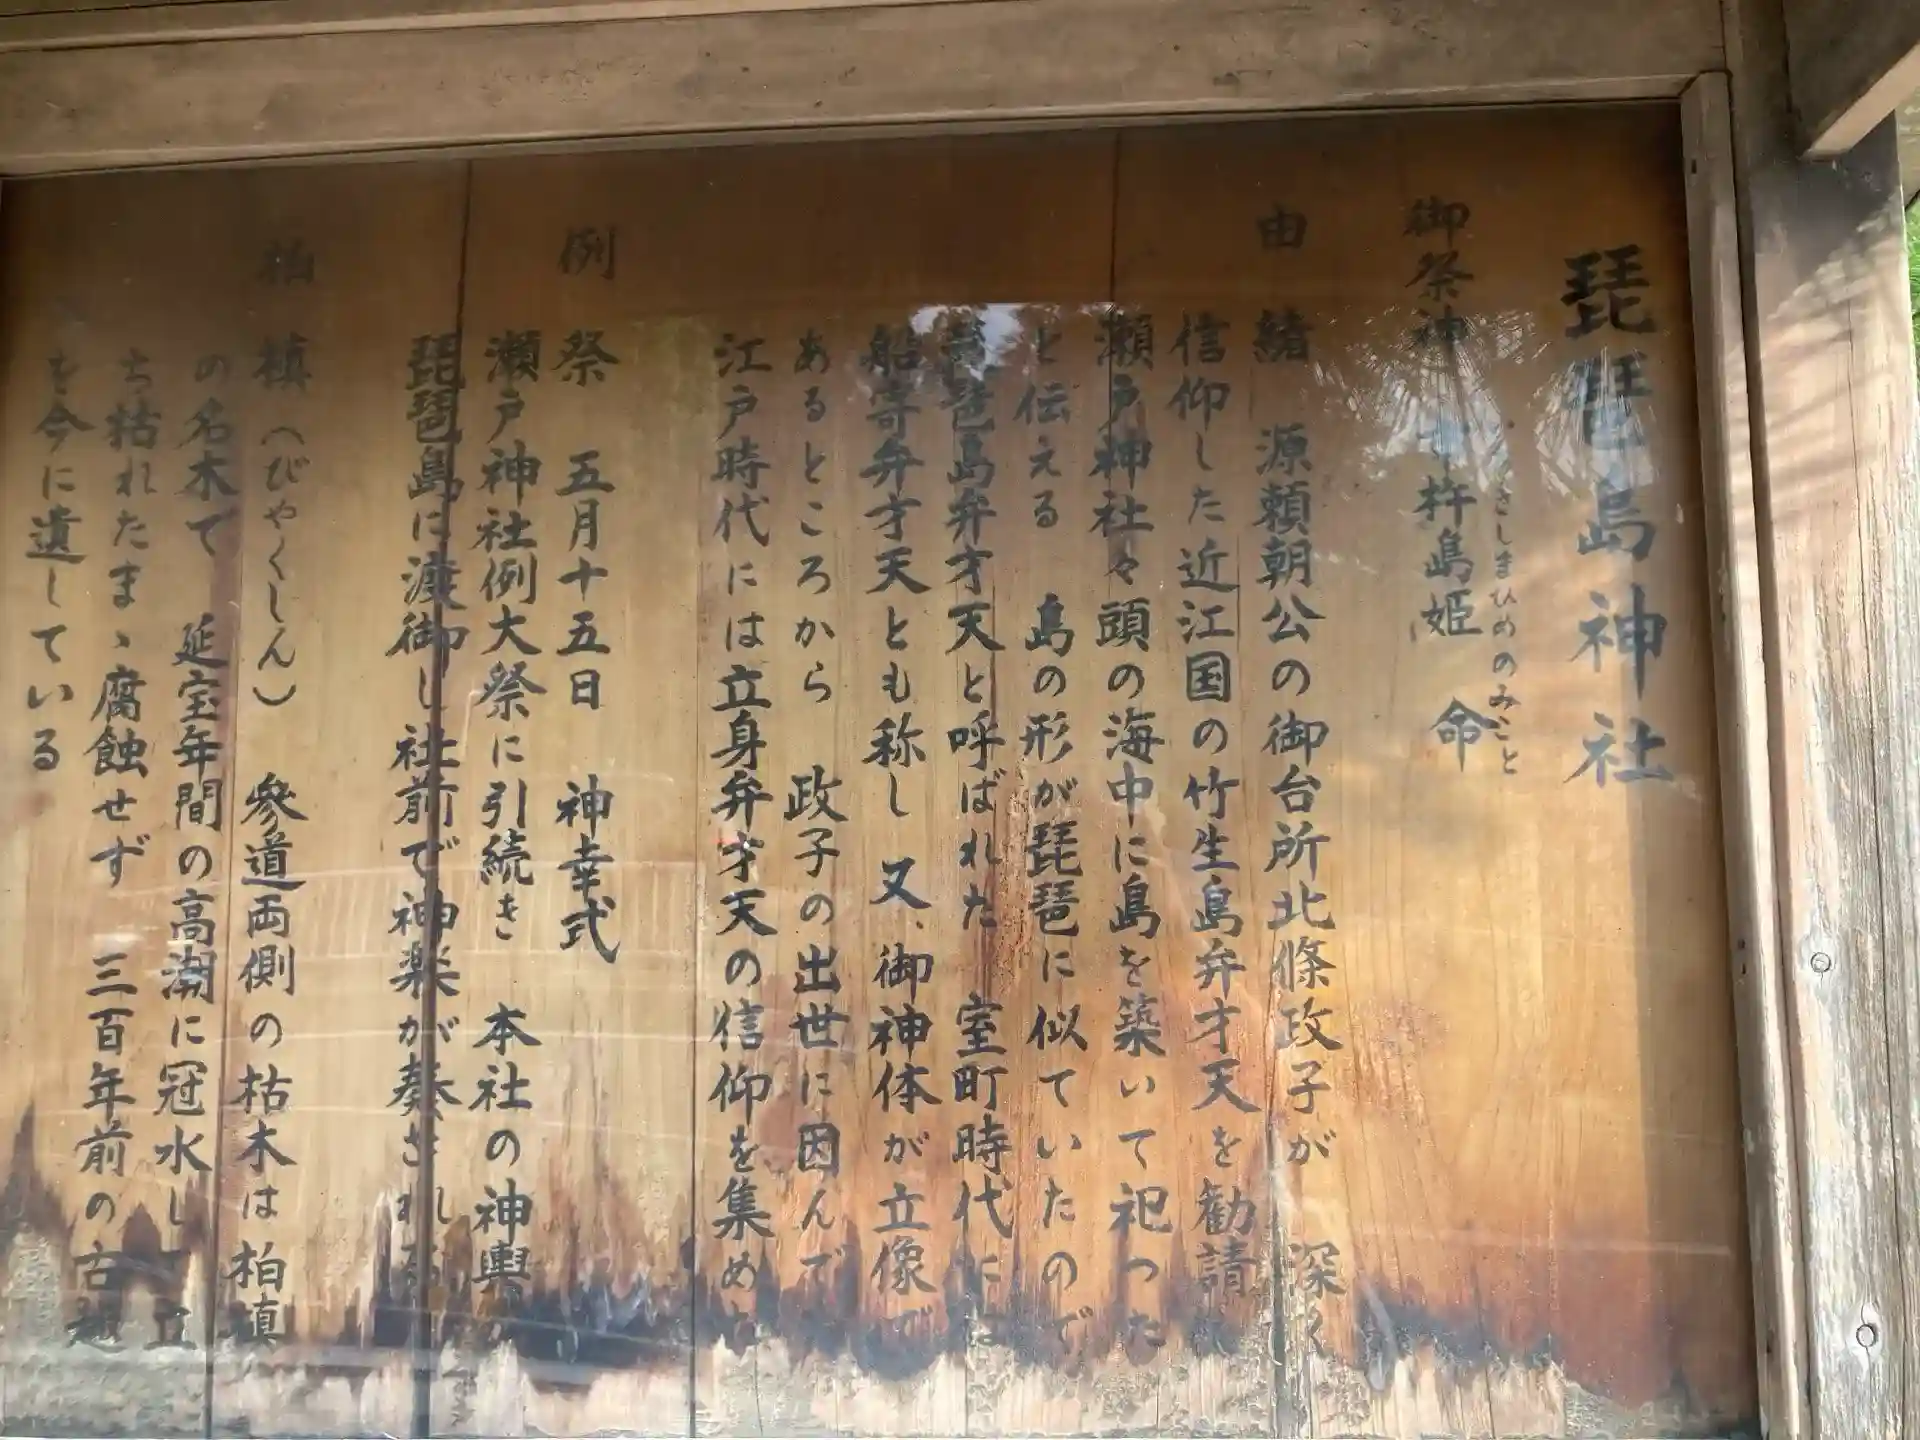 琵琶島神社
御祭神 市杵島姫命
きしまひめのみこと
由緒 源頼朝公の御台所北條政子が 深く
信仰した近江国の竹生島弁才天を勧請し
瀬戸神社々頭の海中に島を築いて祀つた
と伝える 島の形が琵琶に似ていたので
琵琶島弁才天と呼ばれた 室町時代には
船寄弁才天とも称し 又、御神体が立像で
あるところから 政子の出世に因んで
江戸時代には立身弁才天の信仰を集めた
例祭 五月十五日 神幸式
瀬戸神社例大祭に引続き 本社の神輿が
琵琶島に渡御し社前で神楽が奏され
柏槙(びやくしん) 参道両側の枯木は柏槙
の名木で 延宝年間の高潮に冠水し 立
ち枯れたまゝ腐蝕せず 三百年前の古
を今に遺している